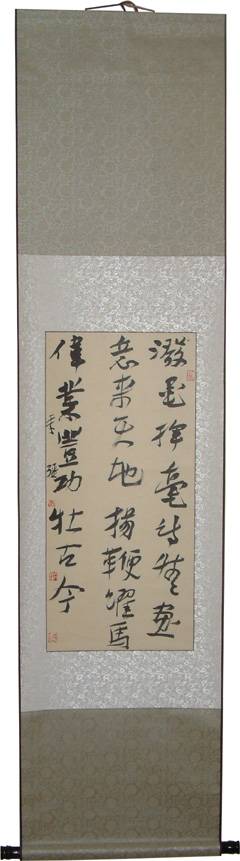 潑墨揮毫詩畫
意来天地揚鞭躍馬
偉業豐功壯古今